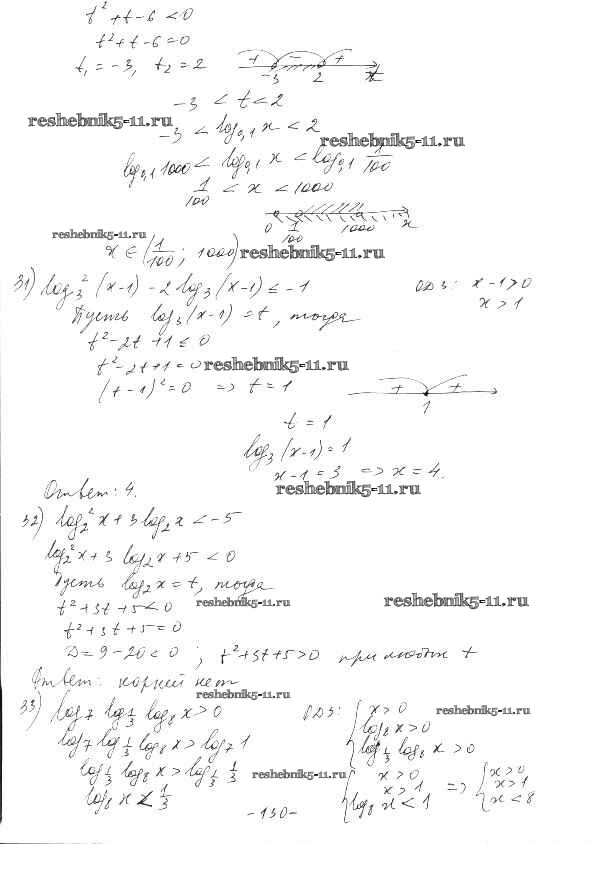 t² + t - 6 < 0
t² + t - 6 = 0
t₁ = -3, t₂ = 2
+ - +
-3 2 t
-3 < t < 2
reshebnik5-11.ru
-3 < log₀,₁ x < 2
reshebnik5-11.ru
log₀,₁ 1000 < log₀,₁ x < log₀,₁ 1/100
1/100 < x < 1000
0 1/100 1000 x
reshebnik5-11.ru
x ∈ (1/100; 1000) reshebnik5-11.ru
31) log₃² (x-1) - 2 log₃ (x-1) ≤ -1 ОДЗ: x-1>0
x > 1
Пусть log₃ (x-1) = t, тогда
t² - 2t + 1 ≤ 0
t² - 2t + 1 = 0 reshebnik5-11.ru
(t-1)² = 0 => t = 1
+ +
1
t = 1
log₃ (x-1) = 1
x-1 = 3 => x = 4.
reshebnik5-11.ru
Ответ: 4.
32) log₂² x + 3 log₂ x < -5
log₂² x + 3 log₂ x + 5 < 0
Пусть log₂ x = t, тогда
t² + 3t + 5 < 0 reshebnik5-11.ru reshebnik5-11.ru
t² + 3t + 5 = 0
D = 9 - 20 < 0 ; t² + 3t + 5 > 0 при любых t
Ответ: корней нет
reshebnik5-11.ru
33) log₇ log_1/3 log₈ x > 0 ОДЗ: { x > 0 reshebnik5-11.ru
log₈ x > 0
log₇ log_1/3 log₈ x > log₇ 1
log_1/3 log₈ x > 0
log_1/3 log₈ x > log_1/3 1/3 reshebnik5-11.ru
{ x > 0 => { x > 0
x > 1 x > 1
log₈ x < 1 x < 8
log₈ x < 1/3
-130-